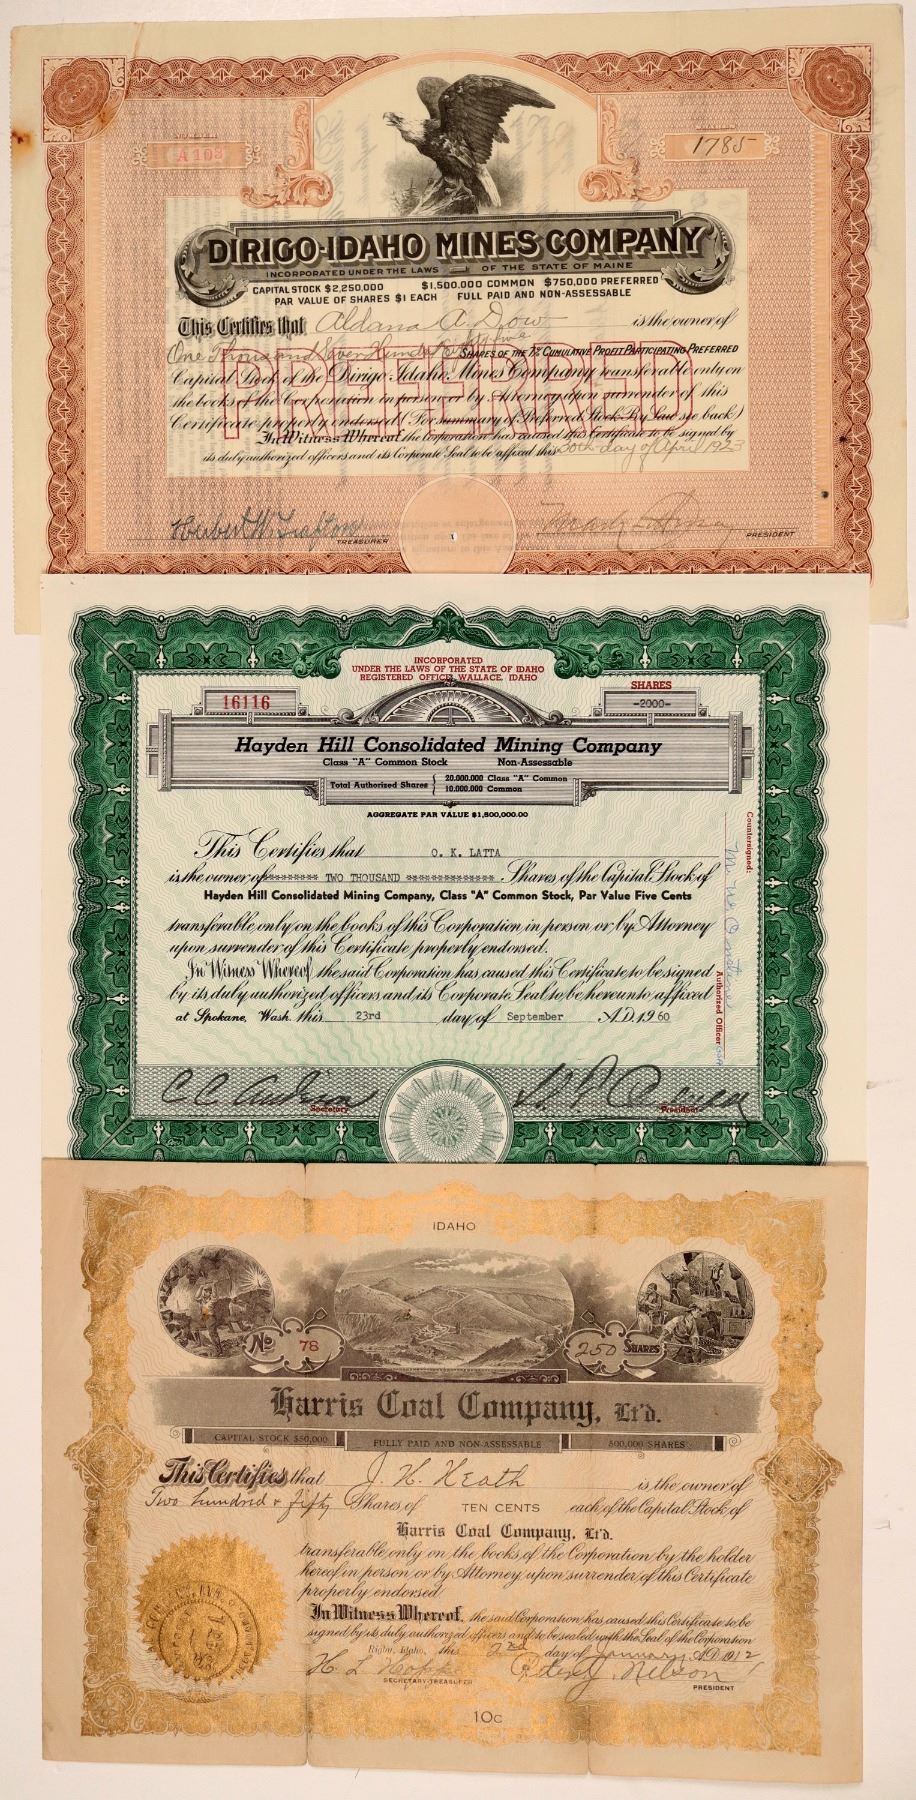 A 103
1785
DIRIGO-IDAHO MINES COMPANY
INCORPORATED UNDER THE LAWS OF THE STATE OF MAINE
CAPITAL STOCK $2,250,000 $1,500,000 COMMON $750,000 PREFERRED
PAR VALUE OF SHARES $1 EACH FULL PAID AND NON-ASSESSABLE
This Certifies that Aldana A. Dow is the owner of
One Thousand Seven Hundred Eighty five SHARES OF THE 7% CUMULATIVE PROFIT PARTICIPATING PREFERRED
Capital Stock of the Dirigo-Idaho Mines Company transferable only on
the books of the Corporation in person or by Attorney upon surrender of this
Certificate properly endorsed (For summary of Preferred Stock By Law see back)
PREFERRED
In Witness Whereof the corporation has caused this Certificate to be signed by
its duly authorized officers and its Corporate Seal to be affixed this 20th day of April 1923
Herbert W. Trafton
TREASURER
PRESIDENT
INCORPORATED
UNDER THE LAWS OF THE STATE OF IDAHO
REGISTERED OFFICE, WALLACE, IDAHO
16116
SHARES
-2000-
Hayden Hill Consolidated Mining Company
Class "A" Common Stock Non-Assessable
Total Authorized Shares { 20.000.000 Class "A" Common
10.000.000 Common
AGGREGATE PAR VALUE $1,500,000.00
This Certifies that O. K. LATTA
is the owner of ******** TWO THOUSAND ************** Shares of the Capital Stock of
Hayden Hill Consolidated Mining Company, Class "A" Common Stock, Par Value Five Cents
transferable only on the books of this Corporation in person or by Attorney
upon surrender of this Certificate properly endorsed.
In Witness Whereof the said Corporation has caused this Certificate to be signed
by its duly authorized officers and its Corporate Seal to be hereunto affixed
at Spokane, Wash. this 23rd day of September A.D. 1960
Countersigned:
Authorized Officer
C C Anderson
Secretary
President
IDAHO
No 78
250 SHARES
Harris Coal Company, Lt'd.
CAPITAL STOCK $50,000 FULLY PAID AND NON-ASSESSABLE 500,000 SHARES
This Certifies that J. H. Heath is the owner of
Two hundred & fifty Shares of TEN CENTS each of the Capital Stock of
Harris Coal Company, Lt'd.
transferable only on the books of the Corporation by the holder
hereof in person or by Attorney upon surrender of this Certificate
properly endorsed
In Witness Whereof, the said Corporation has caused this Certificate to be
signed by its duly authorized officers and to be sealed with the Seal of the Corporation
Rigby, Idaho, this 2nd day of January A.D. 1912
H. L. Hopk
SECRETARY-TREASURER
Peter J. Nelson
PRESIDENT
10c